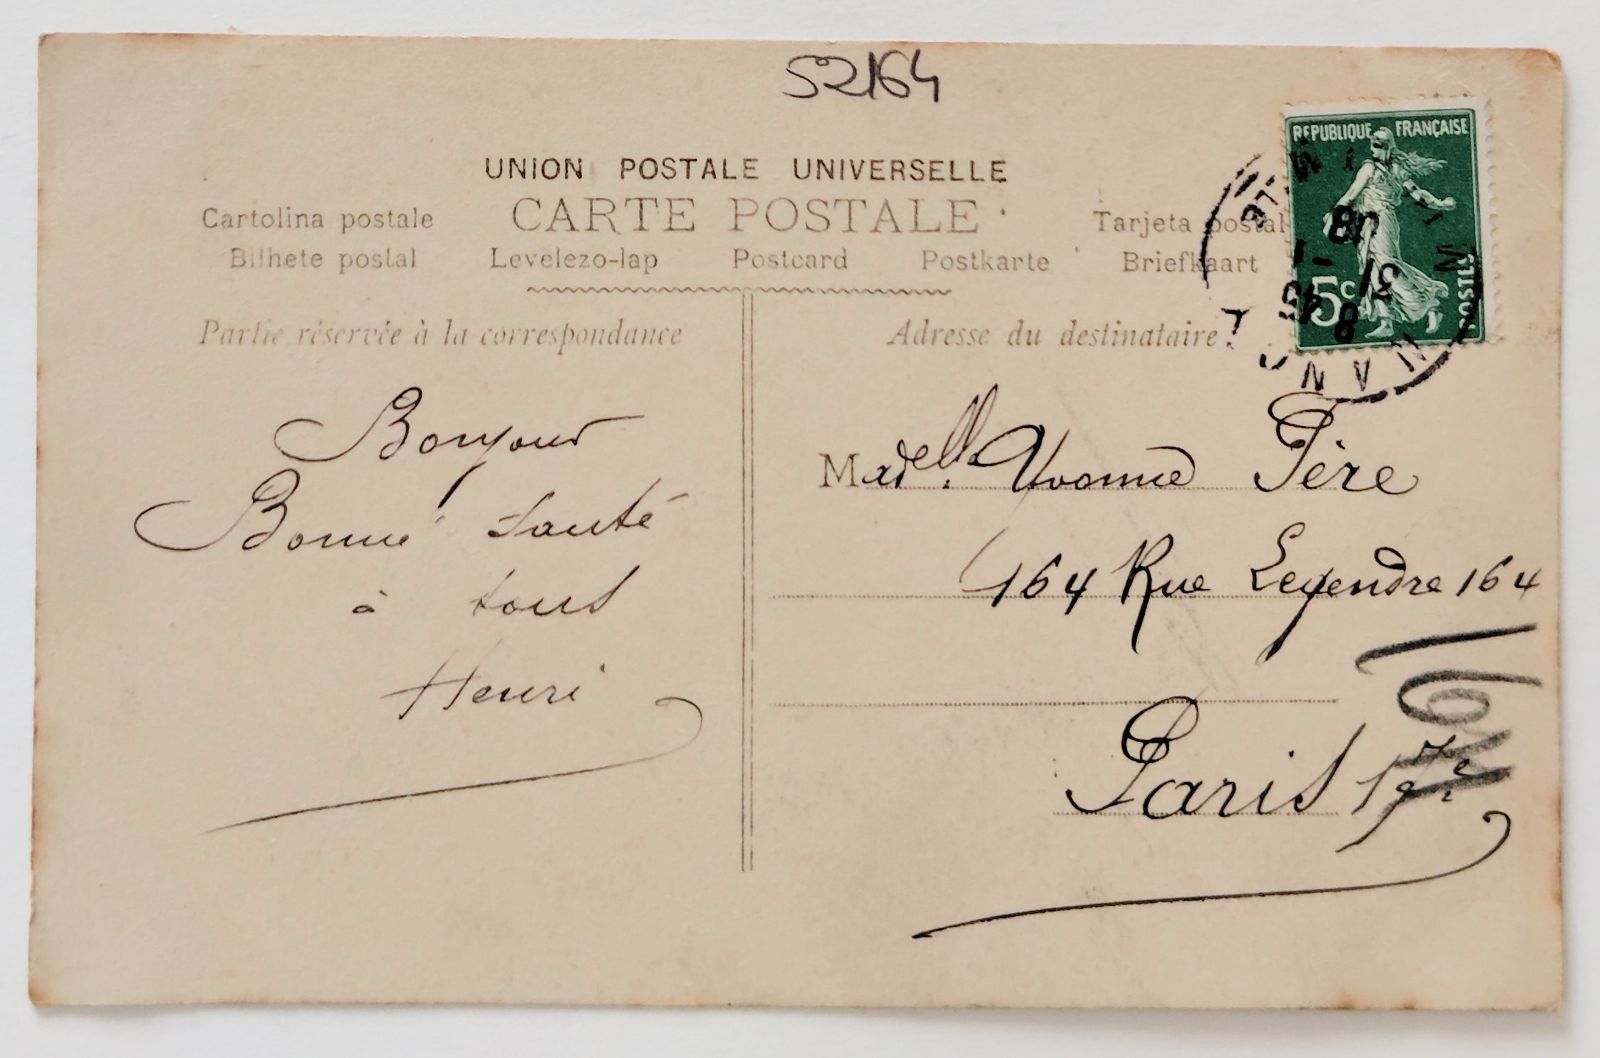 52164
UNION POSTALE UNIVERSELLE
Cartolina postale CARTE POSTALE Tarjeta postal
Bilhete postal Levelezo-lap Postcard Postkarte Briefkaart
REPUBLIQUE FRANÇAISE
5c POSTES
Partie réservée à la correspondance
Adresse du destinataire
Bonjour
Bonne santé
à tous
Henri
Madelle. Yvonne Père
164 Rue Legendre 164
Paris 17e